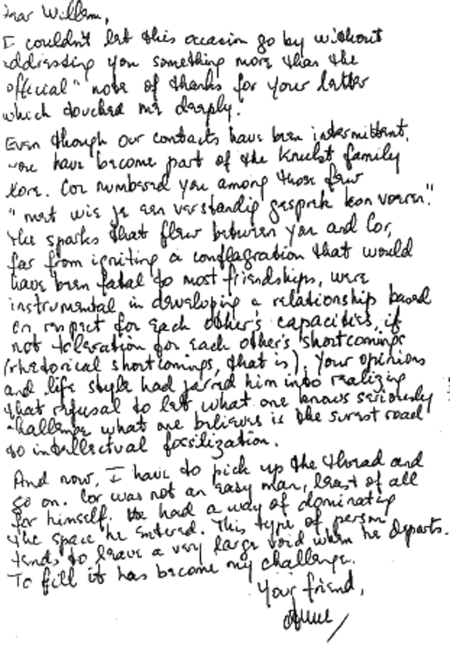 Dear Willem,
I couldn't let this occasion go by without
addressing you something more than the
official" note of thanks for your letter
which touched me deeply.
Even though our contacts have been intermittent,
you have become part of the Kruelst family
lore. Cor numbered you among those few
"met wie je een verstandig gesprek kon voeren."
The sparks that flew between you and Cor,
far from igniting a conflagration that would
have been fatal to most friendships, were
instrumental in developing a relationship based
on respect for each other's capacities, if
not toleration for each other's shortcomings
(rhetorical shortcomings, that is). Your opinions
and life style had jarred him into realizing
that refusal to let what one knows seriously
challenge what one believes is the surest road
to intellectual fossilization.
And now, I have to pick up the thread and
go on. Cor was not an easy man, least of all
for himself. He had a way of dominating
the space he entered. This type of person
tends to leave a very large void when he departs.
To fill it has become my challenge.
Your friend,